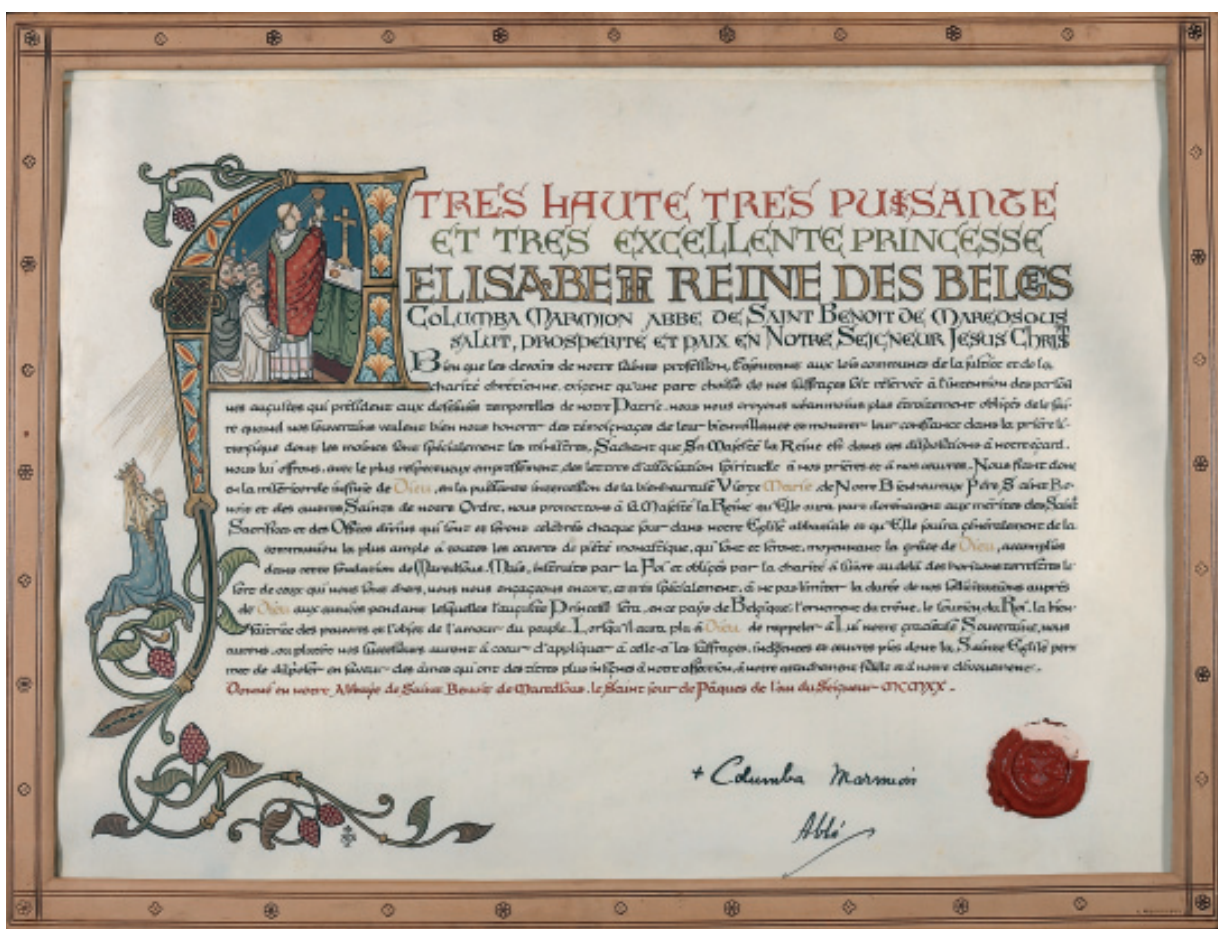 A TRES HAUTE TRES PUISSANTE
ET TRES EXCELLENTE PRINCESSE
ELISABETH REINE DES BELGES
COLUMBA MARMION ABBE DE SAINT BENOIT DE MAREDSOUS
SALUT, PROSPERITE ET PAIX EN NOTRE SEIGNEUR JESUS CHRIST
Bien que les devoirs de notre sainte profession, s'ajoutant aux lois communes de la justice et de la
charité chrétienne, exigent qu'une part choisie de nos suffrages soit réservée à l'intention des person
nes augustes qui président aux destinées temporelles de notre Patrie, nous nous croyons néanmoins plus étroitement obligés de le fai
re quand nos souverains veulent bien nous honorer des témoignages de leur bienveillance et montrer leur confiance dans la prière li
turgique dont les moines sont spécialement les ministres. Sachant que Sa Majesté la Reine est dans ces dispositions à notre égard,
nous lui offrons, avec le plus respectueux empressement, des lettres d'association spirituelle à nos prières et à nos œuvres. Nous fiant donc
en la miséricorde infinie de Dieu, en la puissante intercession de la bienheureuse Vierge Marie, de Notre Bienheureux Père Saint Be
noit et des autres Saints de notre Ordre, nous promettons à Sa Majesté la Reine qu'Elle aura part dorénavant aux mérites des Saints
Sacrifices et des Offices divins qui sont et seront célébrés chaque jour dans notre Eglise abbatiale et qu'Elle jouira généralement de la
communion la plus ample à toutes les œuvres de piété monastique, qui sont et seront, moyennant la grâce de Dieu, accomplis
dans cette fondation de Maredsous. Mais, instruits par la Foi et obligés par la charité à suivre au delà des horizons terrestres le
sort de ceux qui nous sont chers, nous nous engageons encore, et très spécialement, à ne pas limiter la durée de nos sollicitations auprès
de Dieu aux années pendant lesquelles l'auguste Princesse sera, en ce pays de Belgique, l'ornement du trône, le soutien du Roi, la bien
faitrice des pauvres et l'objet de l'amour du peuple. Lorsqu'il aura plu à Dieu de rappeler à Lui notre gracieuse Souveraine, nous
aurons, ou plutôt nos successeurs auront à cœur d'appliquer à celle-ci les suffrages, indulgences et œuvres pies dont la Sainte Eglise per
met de disposer en faveur des âmes qui ont des titres plus insignes à notre affection, à notre attachement fidèle et à notre dévouement.
Donné en notre Abbaye de Saint Benoit de Maredsous, le Saint jour de Pâques de l'an du Seigneur MCMXX.
+ Columba Marmion
Abbé